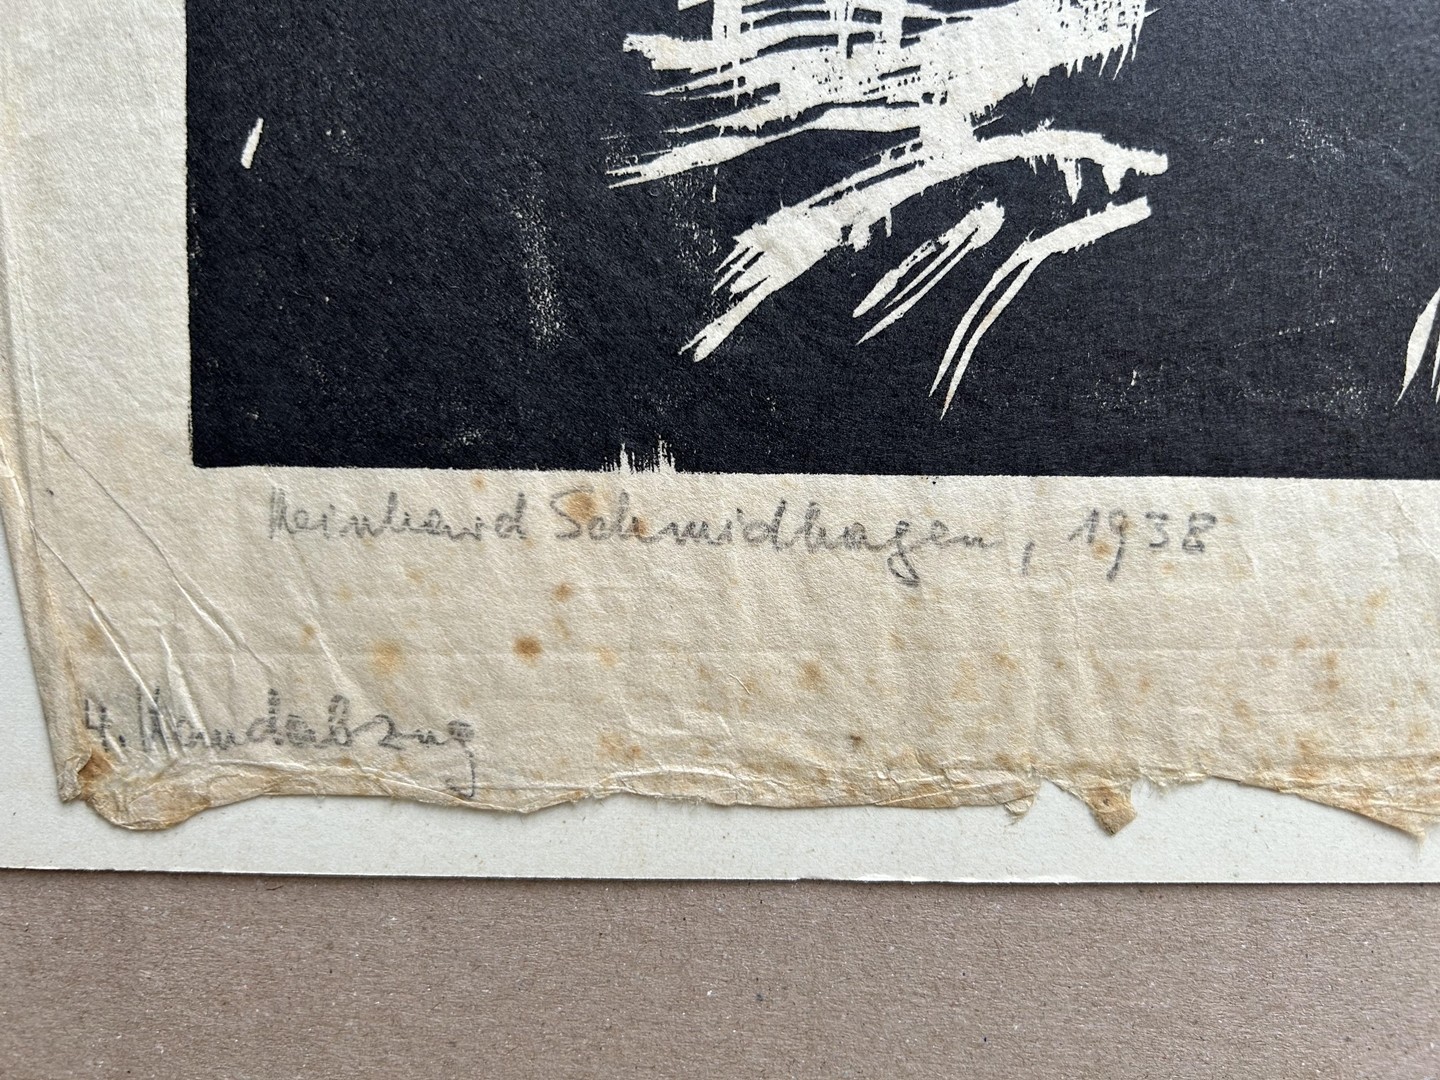 Reinhard Schmidhagen, 1938
4. Handabzug